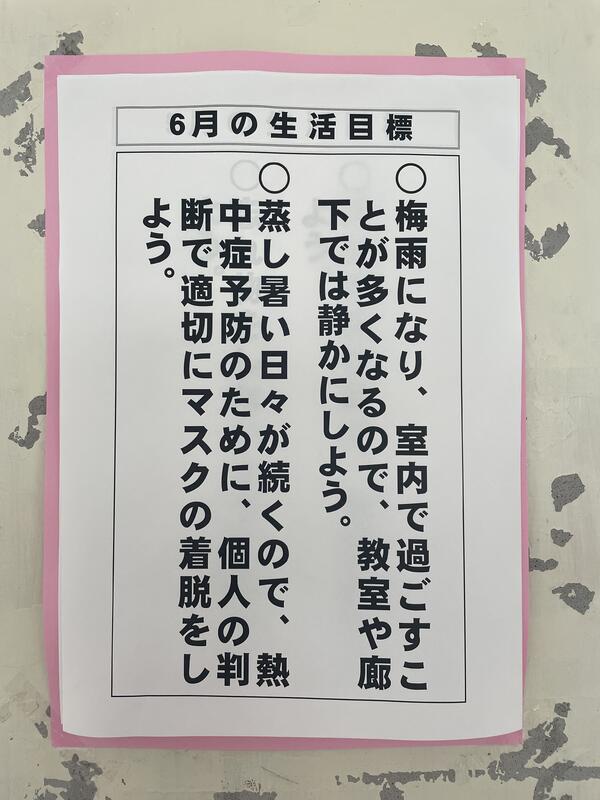 6月の生活目標
○梅雨になり、室内で過ごすこ
とが多くなるので、教室や廊
下では静かにしよう。
○蒸し暑い日々が続くので、熱
中症予防のために、個人の判
断で適切にマスクの着脱をし
よう。